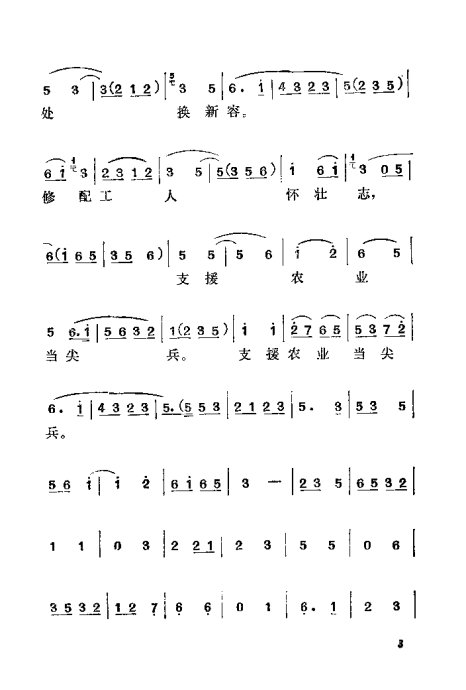 5 3 | 3(2 1 2) | 3 5 | 6. i | 4 3 2 3 | 5(2 3 5) |
处 换 新 容。
6 i 3 | 2 3 1 2 | 3 5 | 5(3 5 6) | i 6 i | 3 0 5 |
修 配 工 人 怀 壮 志,
6(i 6 5 | 3 5 6) | 5 5 | 5 6 | i 2 | 6 5 |
支 援 农 业
5 6.i | 5 6 3 2 | 1(2 3 5) | i i | 2 7 6 5 | 5 3 7 2 |
当 尖 兵。 支 援 农 业 当 尖
6. i | 4 3 2 3 | 5.(5 5 3 | 2 1 2 3 | 5. 3 | 5 3 5 |
兵。
5 6 i | i 2 | 6 i 6 5 | 3 — | 2 3 5 | 6 5 3 2 |
1 1 | 0 3 | 2 2 1 | 2 3 | 5 5 | 0 6 |
3 5 3 2 | 1 2 7 | 6 6 | 0 1 | 6. 1 | 2 3 |
3